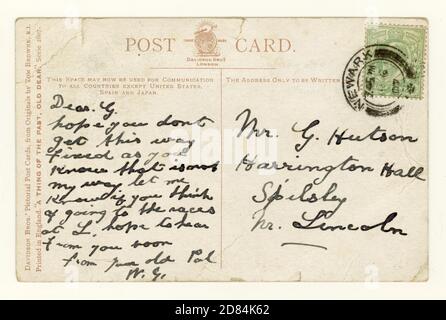 POST CARD.
DAVIDSON BROS
LONDON
THIS SPACE MAY NOW BE USED FOR COMMUNICATION
TO ALL COUNTRIES EXCEPT UNITED STATES,
SPAIN AND JAPAN.
THE ADDRESS ONLY TO BE WRITTEN
DAVIDSON BROS.' Pictorial Post Cards, from Originals by TOM BROWNE, R.I.
Printed in England. "A THING OF THE PAST, OLD DEAR." Series 2607.
NEWARK
Dear. G.
hope you dont
get this way
fixed as you
know that is not
my way. let me
know if you think
of going to the races
at L. hope to hear
from you soon
from your old Pal
W. G.
Mr. G. Hutson
Harrington Hall
Spilsby
Nr. Lincoln
alamy
Image ID: 2D84K62
www.alamy.com